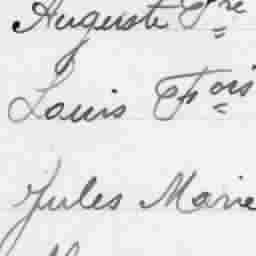 Auguste Pre
Louis Fois
Jules Marie